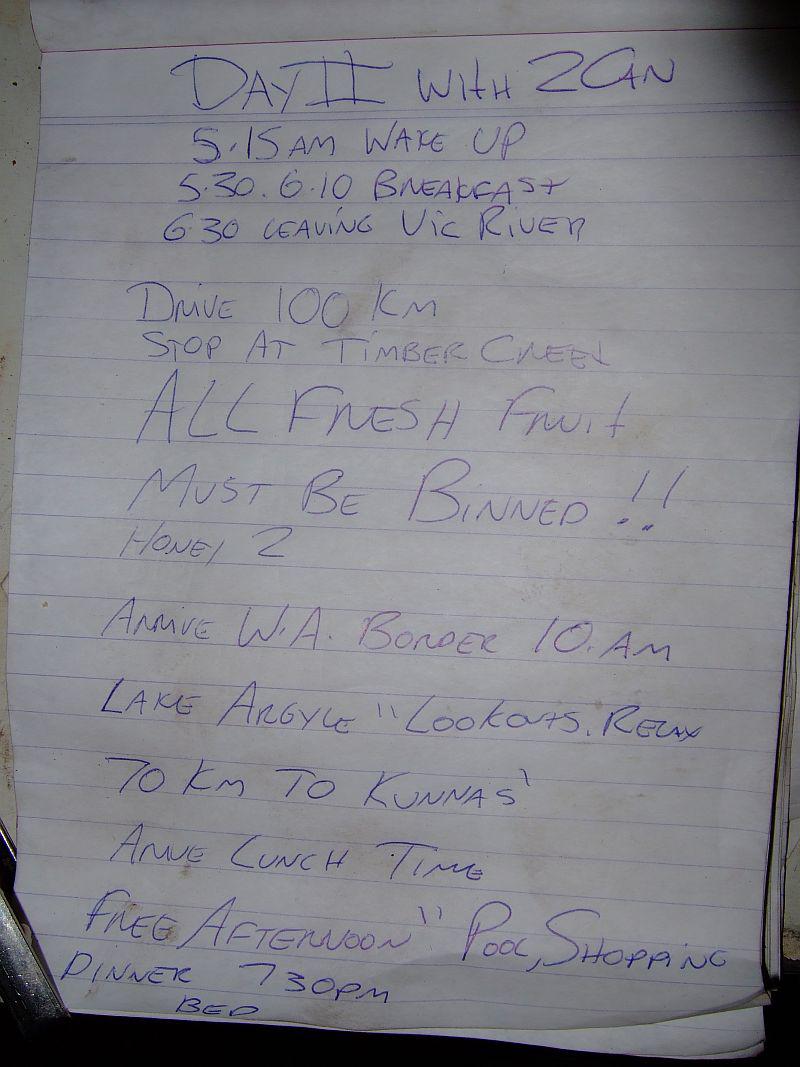 DAY II WITH 2CAN
5.15 AM WAKE UP
5.30.6.10 BREAKFAST
6.30 LEAVING VIC RIVER
DRIVE 100 KM
STOP AT TIMBER CREEK
ALL FRESH FRUIT
MUST BE BINNED !!
HONEY 2
ARRIVE W.A. BORDER 10. AM
LAKE ARGYLE "LOOKOUTS. RELAX
70 KM TO KUNNAS'
ARRIVE LUNCH TIME
FREE AFTERNOON" POOL, SHOPPING
DINNER 730PM
BED